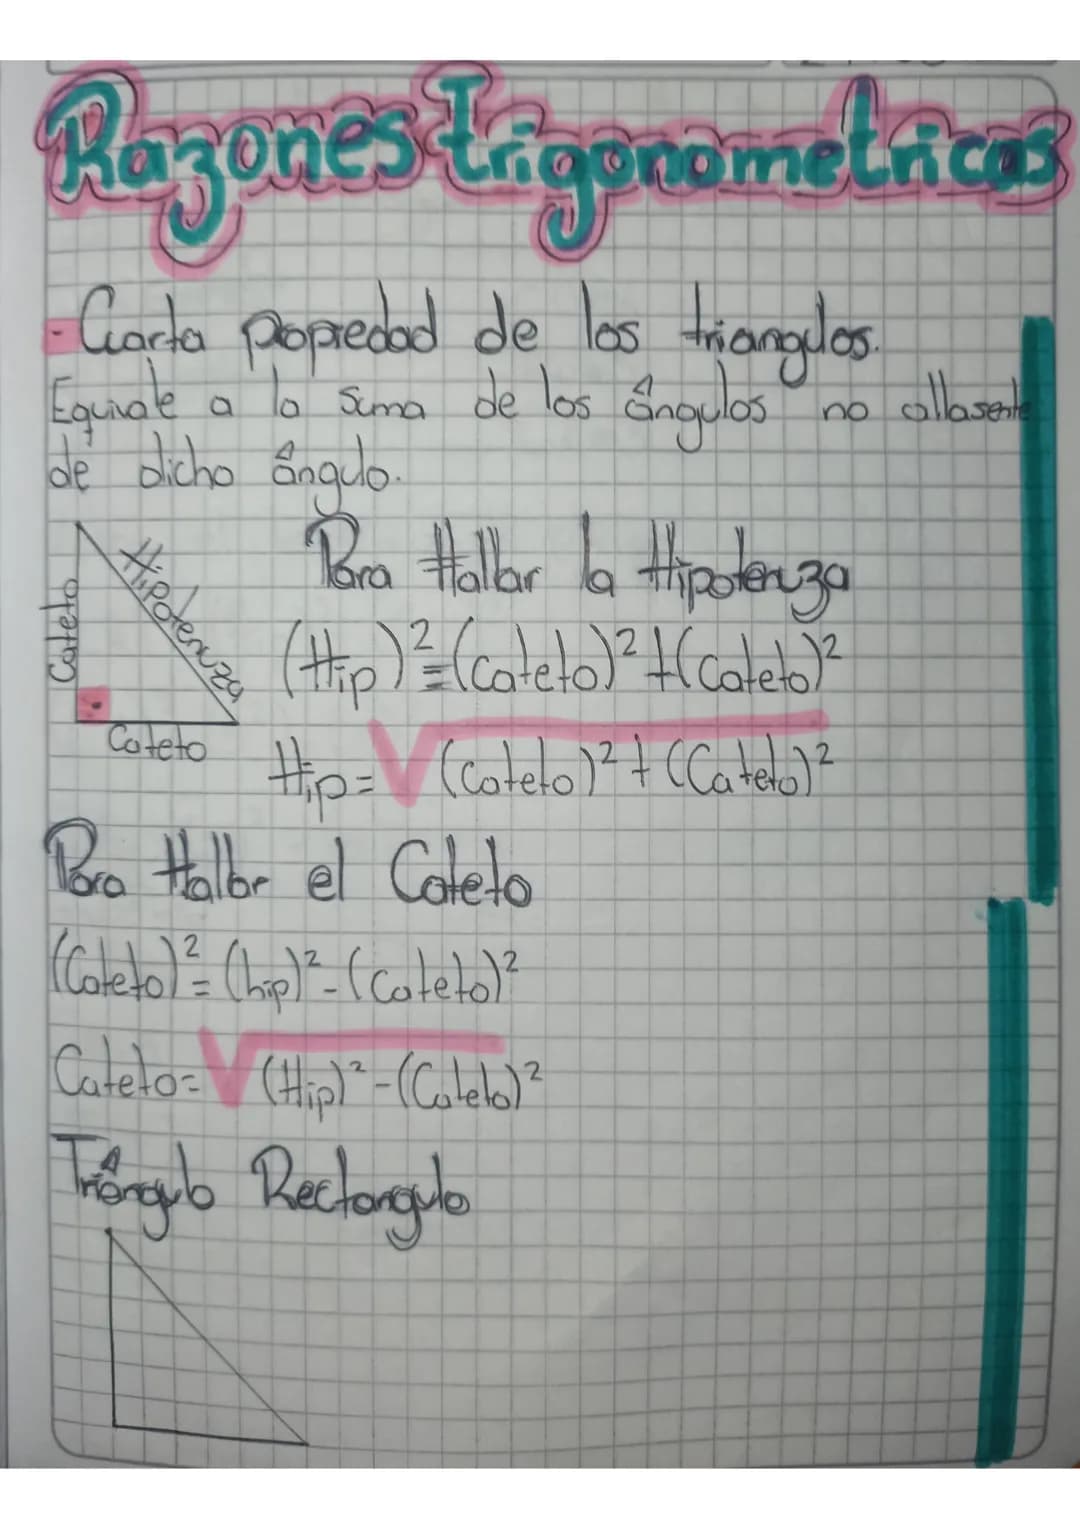 Razones trigonometricas
- Cuarta popiedad de los triangulos.
Equivale a la suma de los ángulos no allasente
de dicho ángulo.
Para Hallar la Hipotenuza
Cateto
Hipotenuza
Cateto
(Hip)²=(Cateto)²+(Cateto)²
Hip=√(Cateto)²+(Cateto)²
Para Hallar el Cateto
(Cateto)²=(hip)²-(Cateto)²
Cateto=√(Hip)²-(Cateto)²
Triángulo Rectangulo